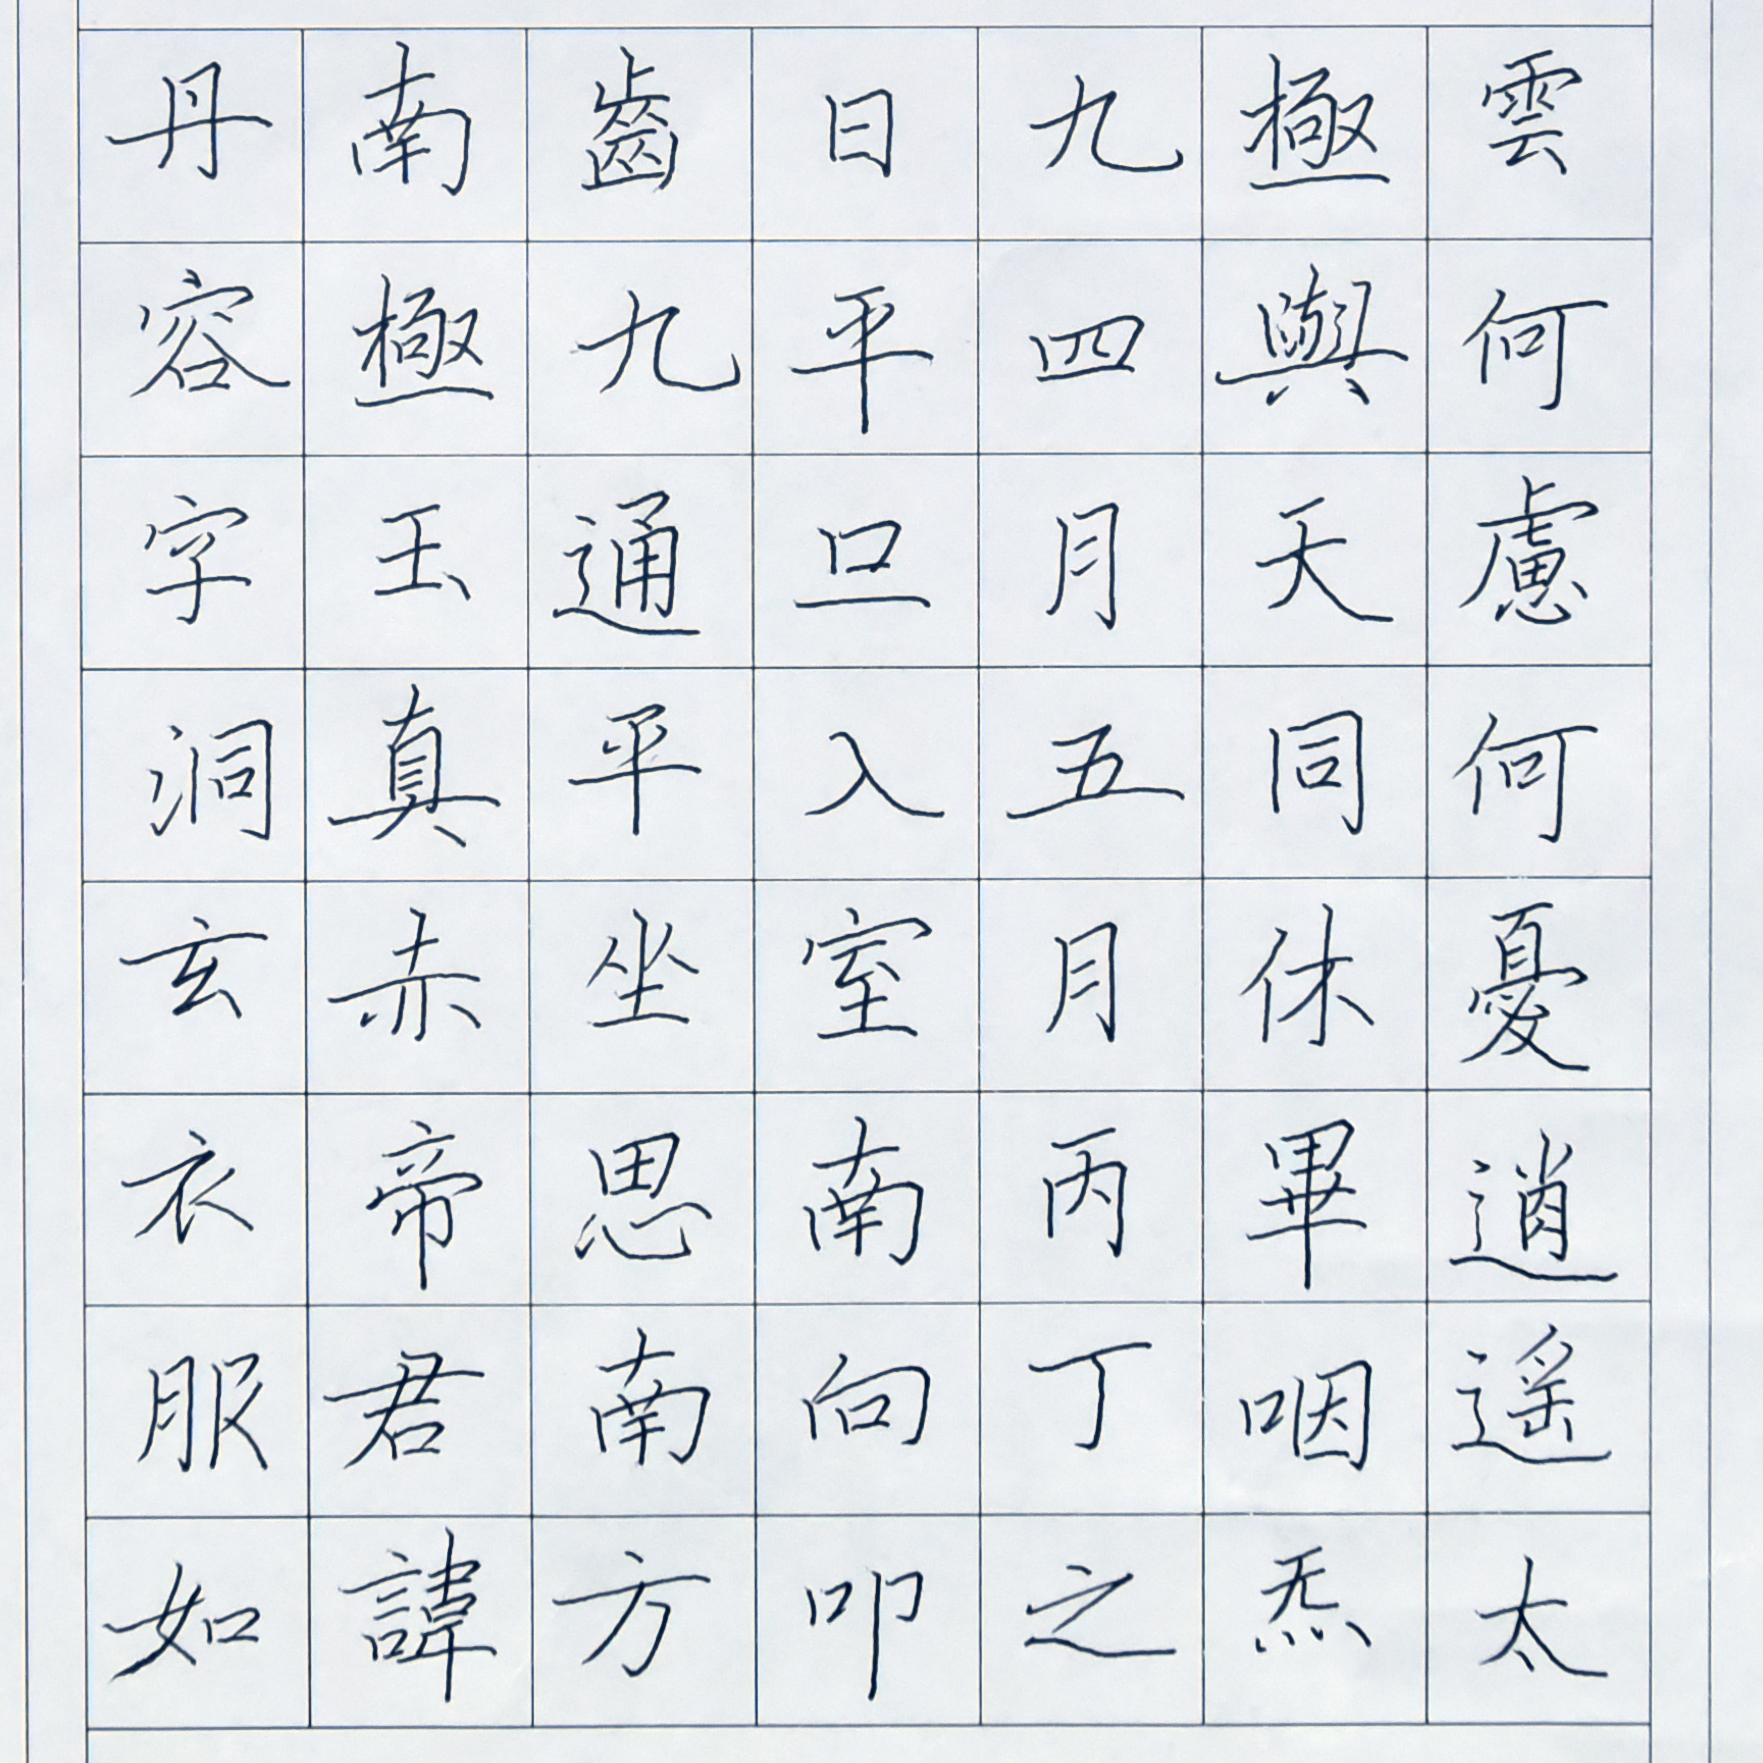 雲何慮何憂逍遥太
極與天同休畢咽炁
九四月五月丙丁之
日平旦入室南向叩
齒九通平坐思南方
南極王真赤帝君諱
丹容字洞玄衣服如